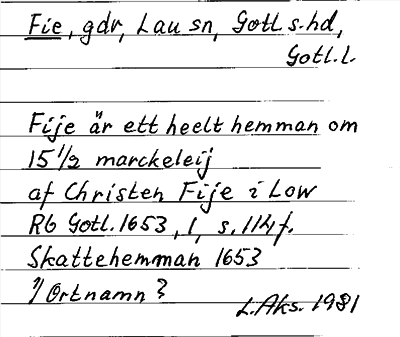 Fie, gdr, Lau sn, Gotl s. hd,
Gotl. l.
Fije är ett heelt hemman om
15 1/2 marckeleij
af Christen Fije i Low
Rb Gotl. 1653, 1, s. 114 f.
Skattehemman 1653
1) Ortnamn?
L. Aks. 1981